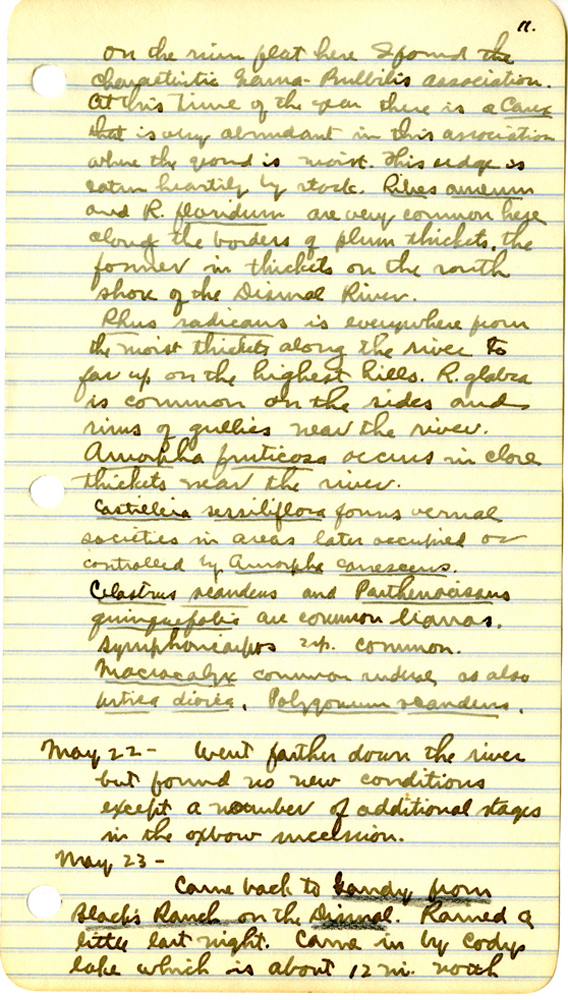 11.
On the rim flat here I found the
characteristic Grama-Bulbilis association.
At this time of the year there is a Carex
that is very abundant in this association
where the ground is moist. This sedge is
eaten heartily by stock. Ribes aureum
and R. floridum are very common here
along the borders of plum thickets, the
former in thickets on the south
shore of the Dismal River.
Rhus radicans is everywhere from
the moist thickets along the river to
far up on the highest hills. R. glabra
is common on the sides and
rims of gullies near the river.
Amorpha fruticosa occurs in close
thickets near the river.
Castilleia sessiliflora forms vernal
societies in areas later occupied or
controlled by Amorpha canescens.
Celastrus scandens and Parthenocissus
quinquefolia are common lianas.
Symphoricarpos sp. common.
Macrocalyx common ruderal, as also
Urtica dioica, Polygonum scandens.
May 22- Went farther down the river
but found no new conditions
except a number of additional stages
in the oxbow succession.
May 23-
Came back to Gandy from
Black's Ranch on the Dismal. Rained a
little last night. Came in by Codys
lake which is about 12 mi. north